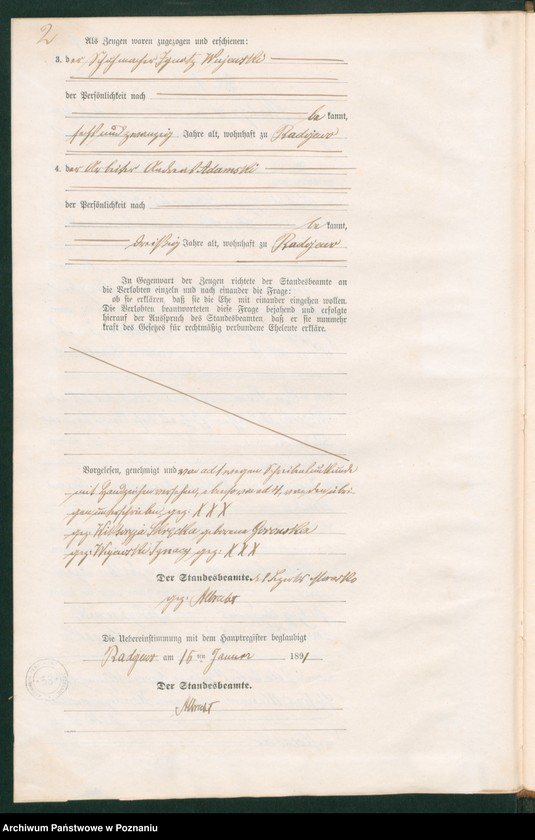 2
Als Zeugen waren zugezogen und erschienen:
3. der Schuhmacher Ignatz Wujewski
der Persönlichkeit nach
be kannt,
sechs und zwanzig Jahre alt, wohnhaft zu Radojewo
4. der Arbeiter Andreas Adamski
der Persönlichkeit nach
be kannt,
dreißig Jahre alt, wohnhaft zu Radojewo
In Gegenwart der Zeugen richtete der Standesbeamte an
die Verlobten einzeln und nach einander die Frage:
ob sie erklären, daß sie die Ehe mit einander eingehen wollen.
Die Verlobten beantworteten diese Frage bejahend und erfolgte
hierauf der Ausspruch des Standesbeamten, daß er sie nunmehr
kraft des Gesetzes für rechtmäßig verbundene Eheleute erkläre.
Vorgelesen, genehmigt und wegen Schreibensunkunde
mit Handzeichen versehen, ad 4, von den übri-
gen unterschrieben, gez. XXX
gez. Wiktoryja geborene
gez. Wujewski Ignacy gez. XXX
Der Standesbeamte.
gez. Albrecht
Die Uebereinstimmung mit dem Hauptregister beglaubigt
am 15 ten Januar 1891
Der Standesbeamte.
Albrecht
Archiwum Państwowe w Poznaniu